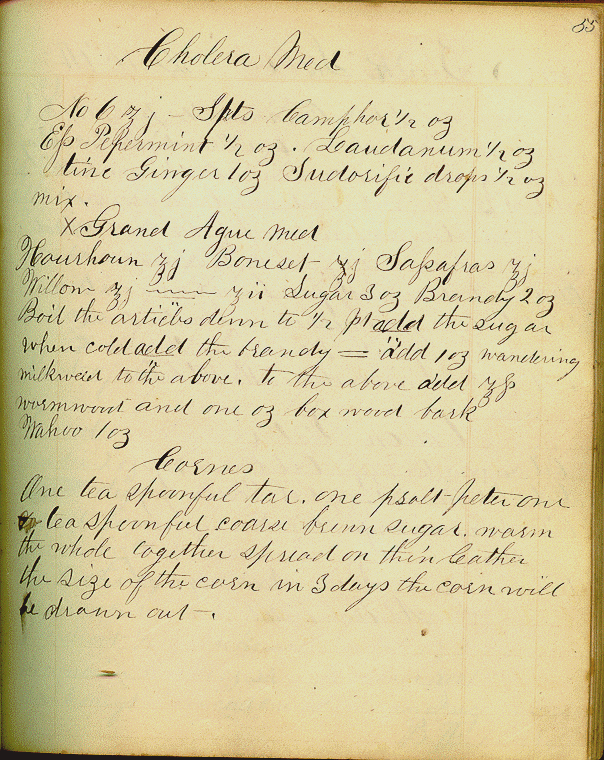 55
Cholera Med
No 6 ʒj - Spts Camphor 1/2 oz
Ess Pepermint 1/2 oz. Laudanum 1/2 oz
tinc Ginger 1 oz Sudorific drops 1/2 oz
mix.
X Grand Ague Med
Hourhoun ʒj Boneset ʒj Sassafras ʒj
Willow ʒj ʒii Sugar 3 oz Brandy 2 oz
Boil the articles down to 1/2 pt add the sugar
when cold add the brandy = add 1 oz wandering
milkweed to the above. to the above add ʒss
wormwood and one oz box wood bark
Wahoo 1 oz
Cornes
One tea spoonful tar. one salt peter one
tea spoonful coarse brown sugar. warm
the whole together spread on thin leather
the size of the corn in 3 days the corn will
be drawn out.